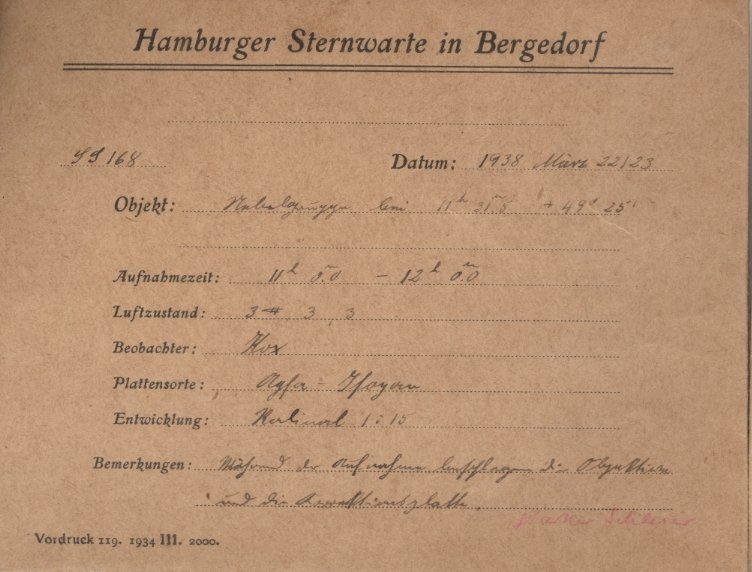 Hamburger Sternwarte in Bergedorf
SS 168 Datum: 1938 März 22/23
Objekt: Nebelgruppe bei 11ʰ + 49° 25'
Aufnahmezeit: 11ʰ 0.0 – 12ʰ 0ᵐ.0
Luftzustand: 3 3, 3
Beobachter: Kox
Plattensorte: Agfa-Isopan
Entwicklung: Rodinal 1:15
Bemerkungen: Während der Aufnahme beschlagen die Objektive
und die Korrektionsplatte.
starker Schleier
Vordruck 119. 1934 III. 2000.